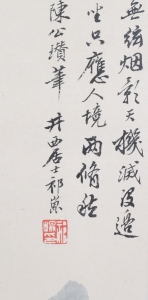 無絃烟影天機滅沒邊
坐只應人境兩脩然
陳公瓚筆 井西居士祁豸